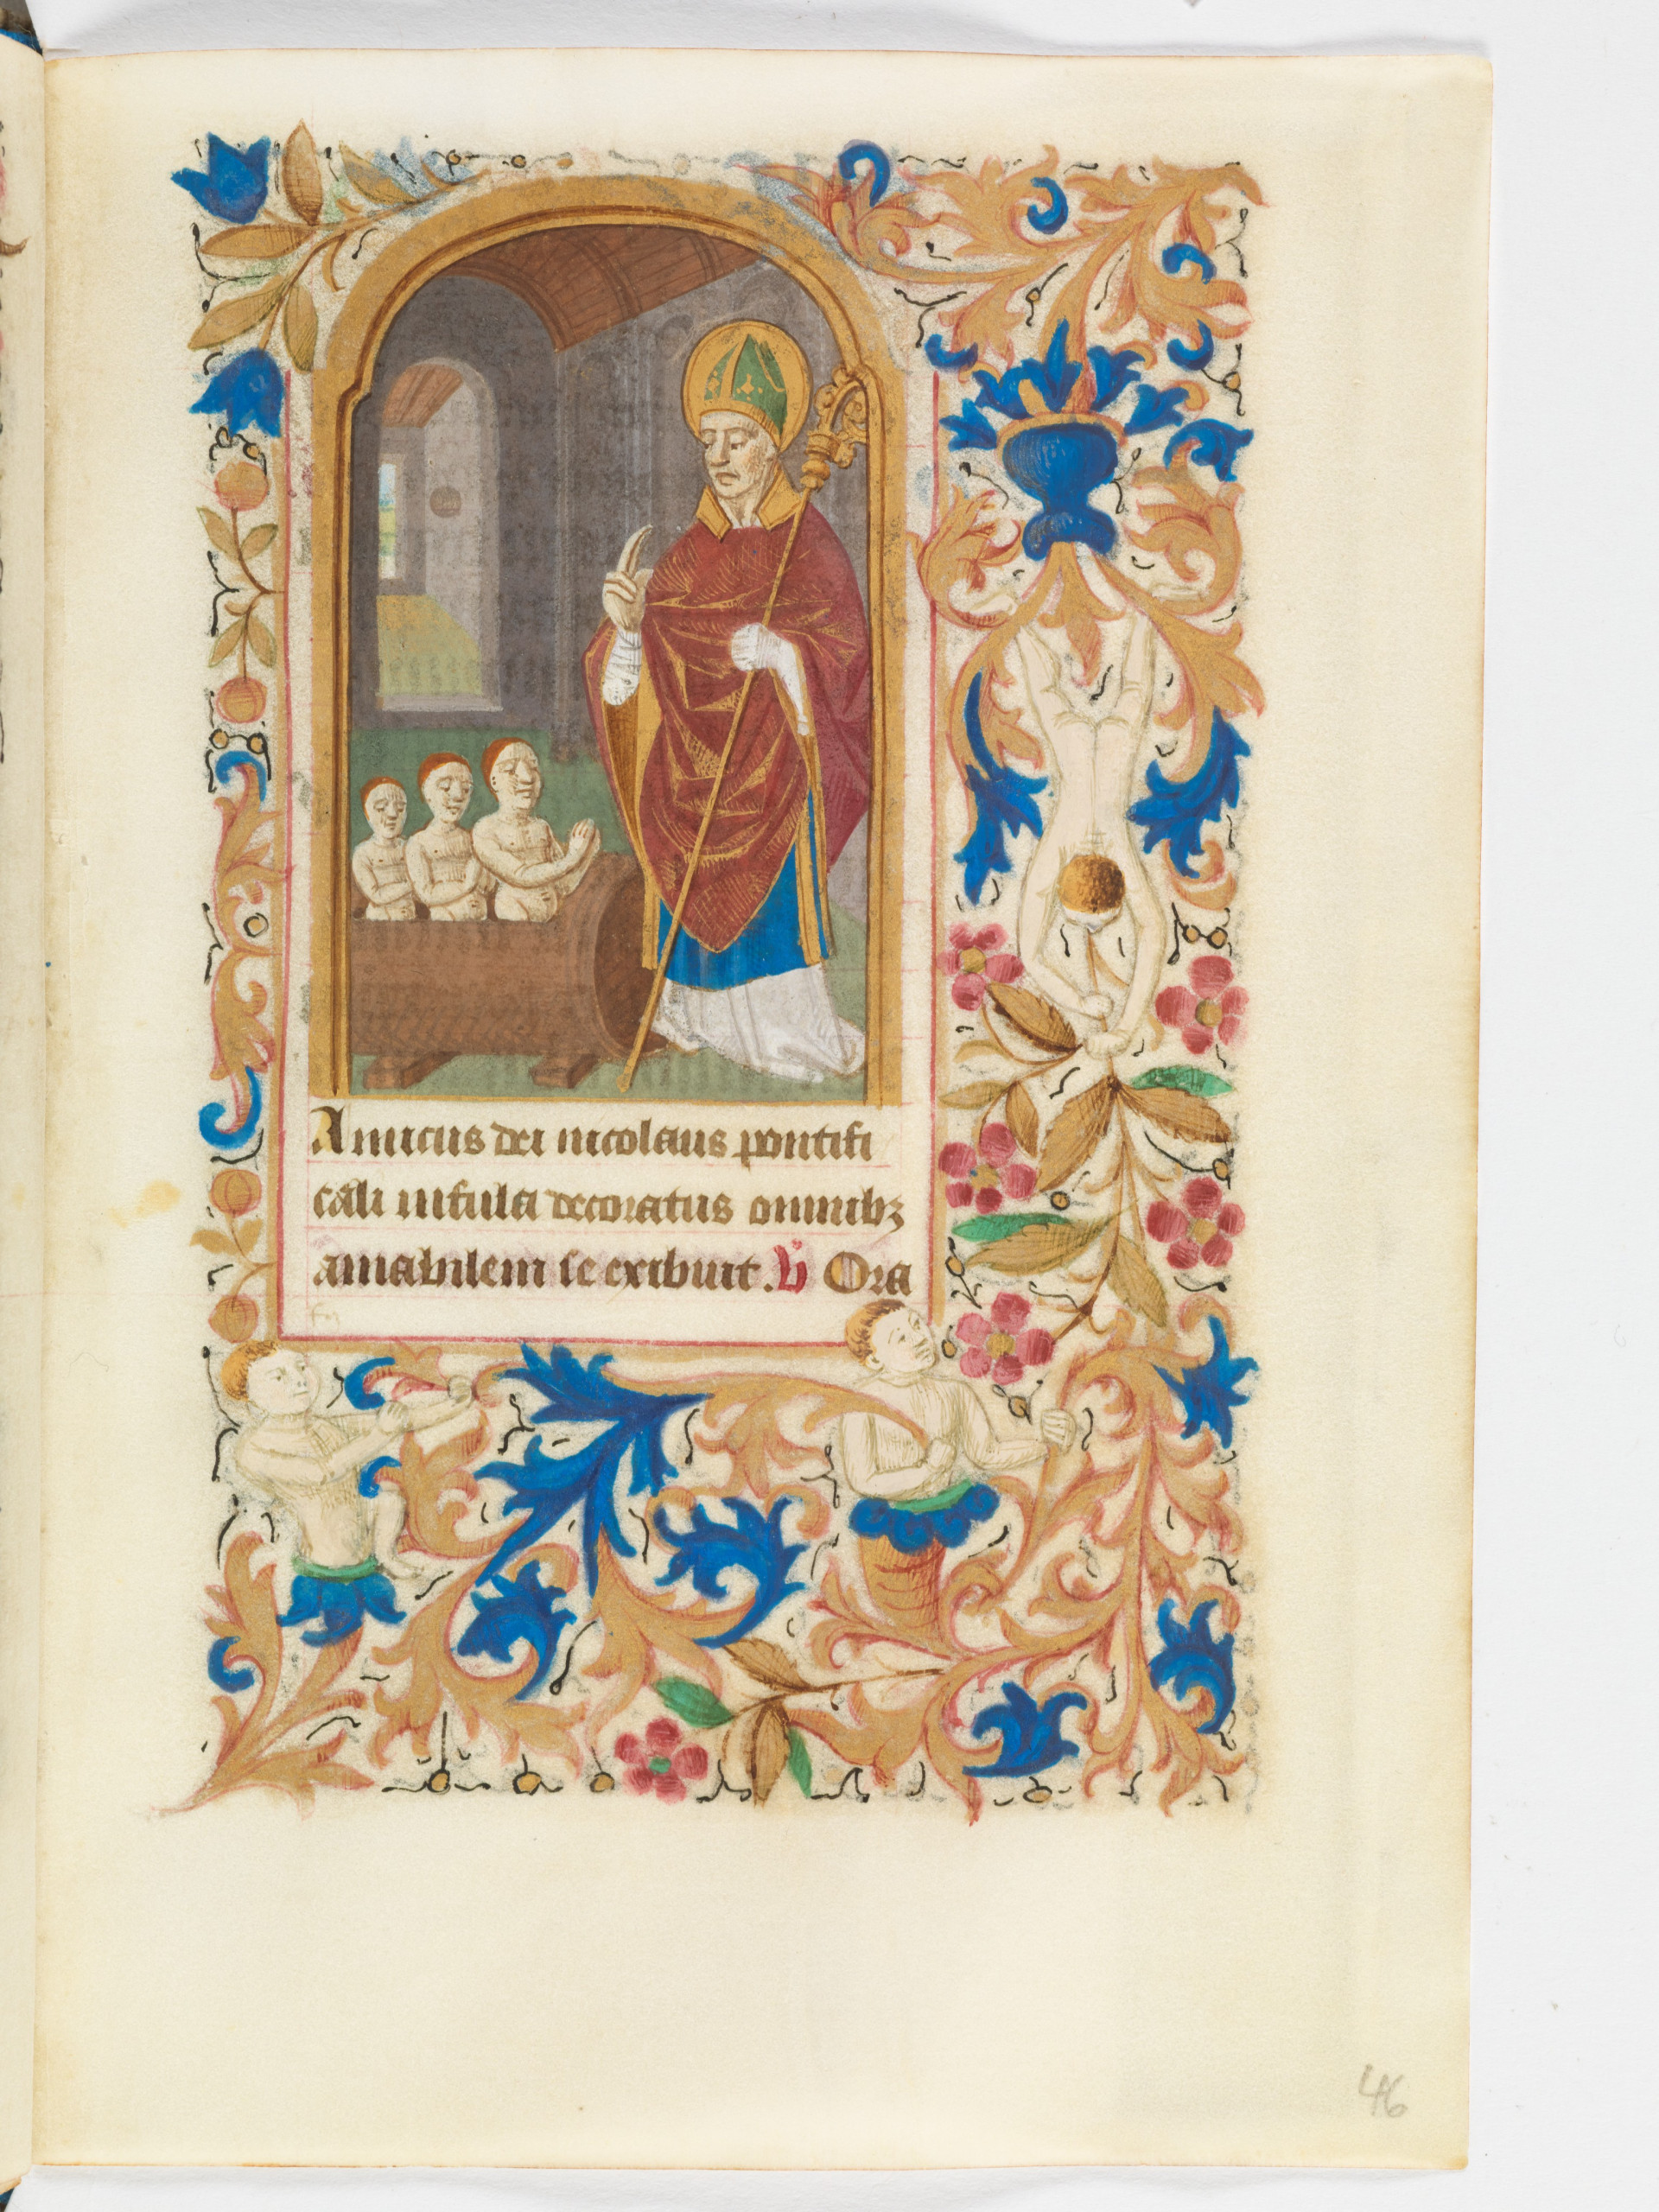 Amicus dei nicolaus pontifi
cali infula decoratus omnibꝫ
amabilem se exibuit. ℣ Ora
46